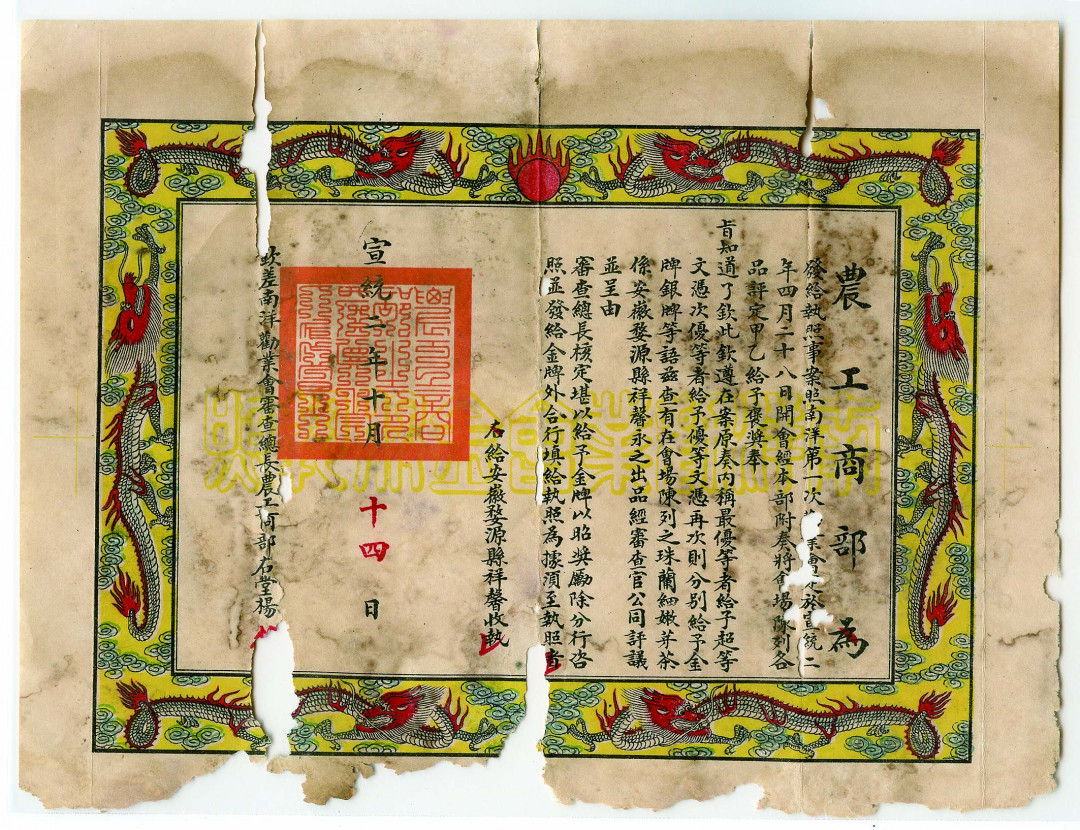 農工商部為
發給執照事案照南洋第一次 業會 於宣統二
年四月二十八日開會經本部附奏將會場陳列各
品評定甲乙給予褒獎奉
旨知道了欽此欽遵在案原奏內稱最優等者給予超等
文憑次優等者給予優等文憑再次則分別給予金
牌銀牌等語茲查有在會場陳列之珠蘭細嫩芽茶
係安徽婺源縣祥馨永之出品經審查官公同評議
並呈由
審查總長核定堪以給予金牌以昭獎勵除分行咨
照並發給金牌外合行填給執照為據須至執照者
右給安徽婺源縣祥馨收執
宣統二年十月十四日
欽差南洋勸業會審查總長農工商部右堂楊
南洋勸業會金牌執照